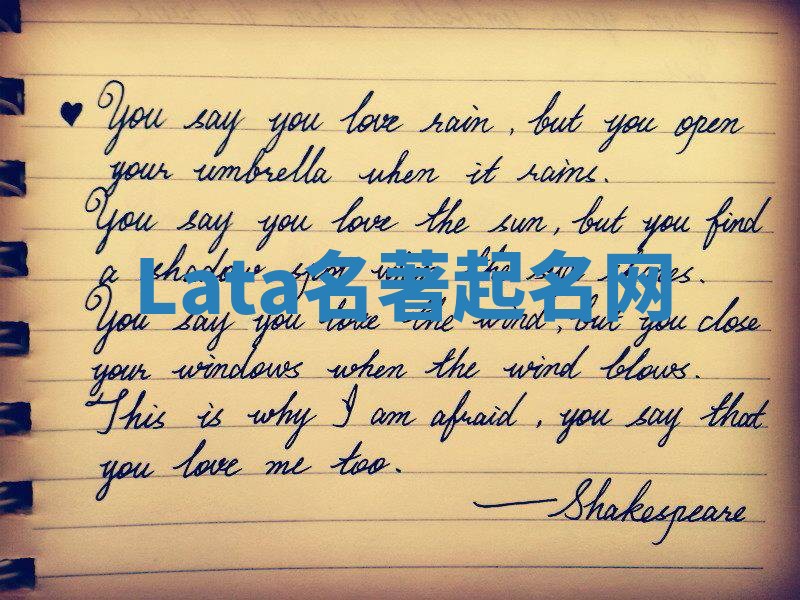 ♥ You say you love rain, but you open
your umbrella when it rains.
You say you love the sun, but you find
a shadow spot when the sun shines.
Lata名著起名网
You say you love the wind, but you close
your windows when the wind blows.
This is why I am afraid, you say that
you love me too.
—Shakespeare